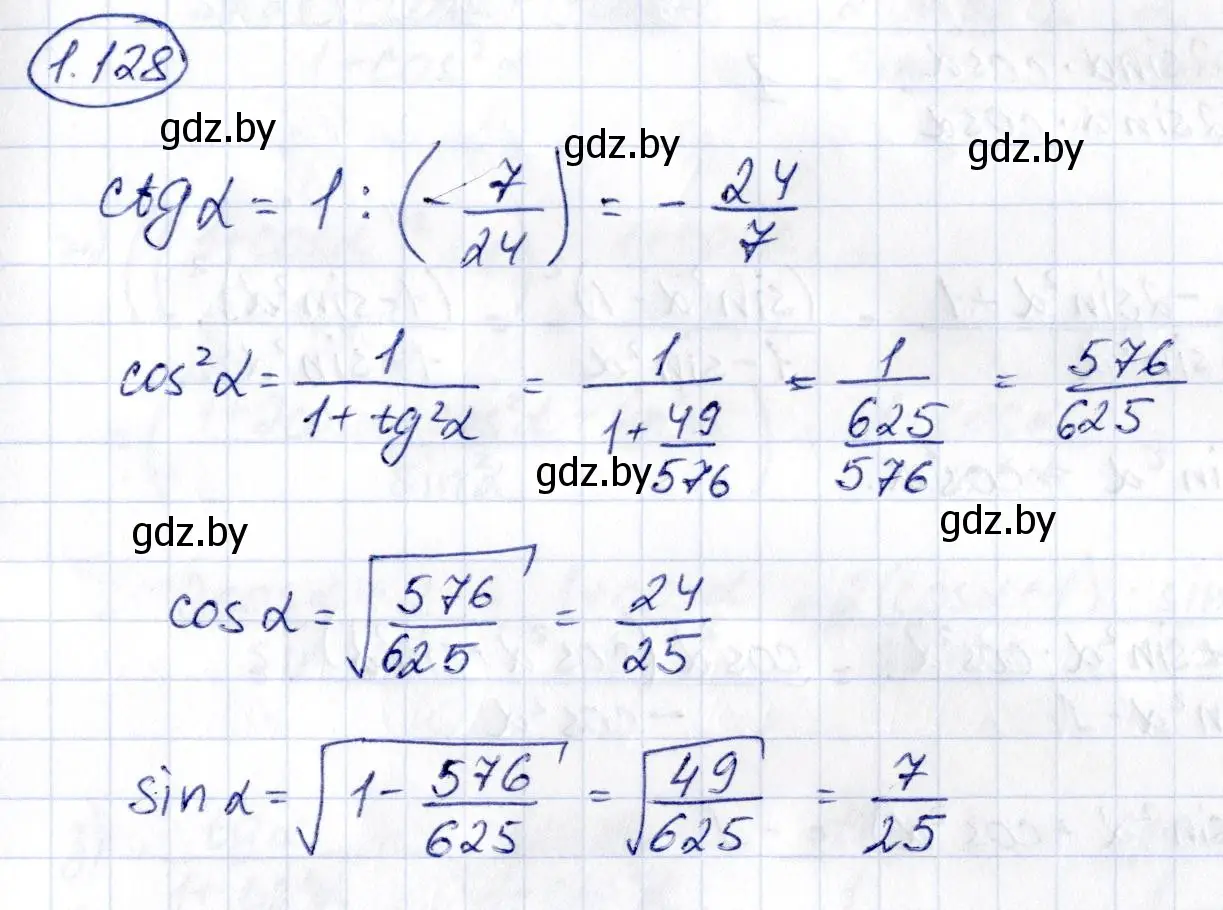 1.128
gdz.by gdz.by gdz.by
ctg α = 1 : (- 7/24) = - 24/7
cos² α = 1/(1 + tg² α) = 1/(1 + 49/576) = 1/(625/576) = 576/625
gdz.by gdz.by gdz.by
cos α = √(576/625) = 24/25
sin α = √(1 - 576/625) = √(49/625) = 7/25